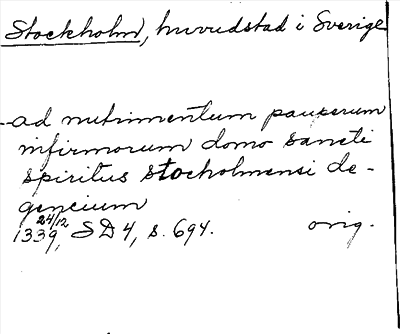 Stockholm, huvudstad i Sverige
-ad nutrimentum pauperum
infirmorum domo sancti
spiritus stocholmensi de-
gencium
1339 24/12, SD 4, s. 694. orig.